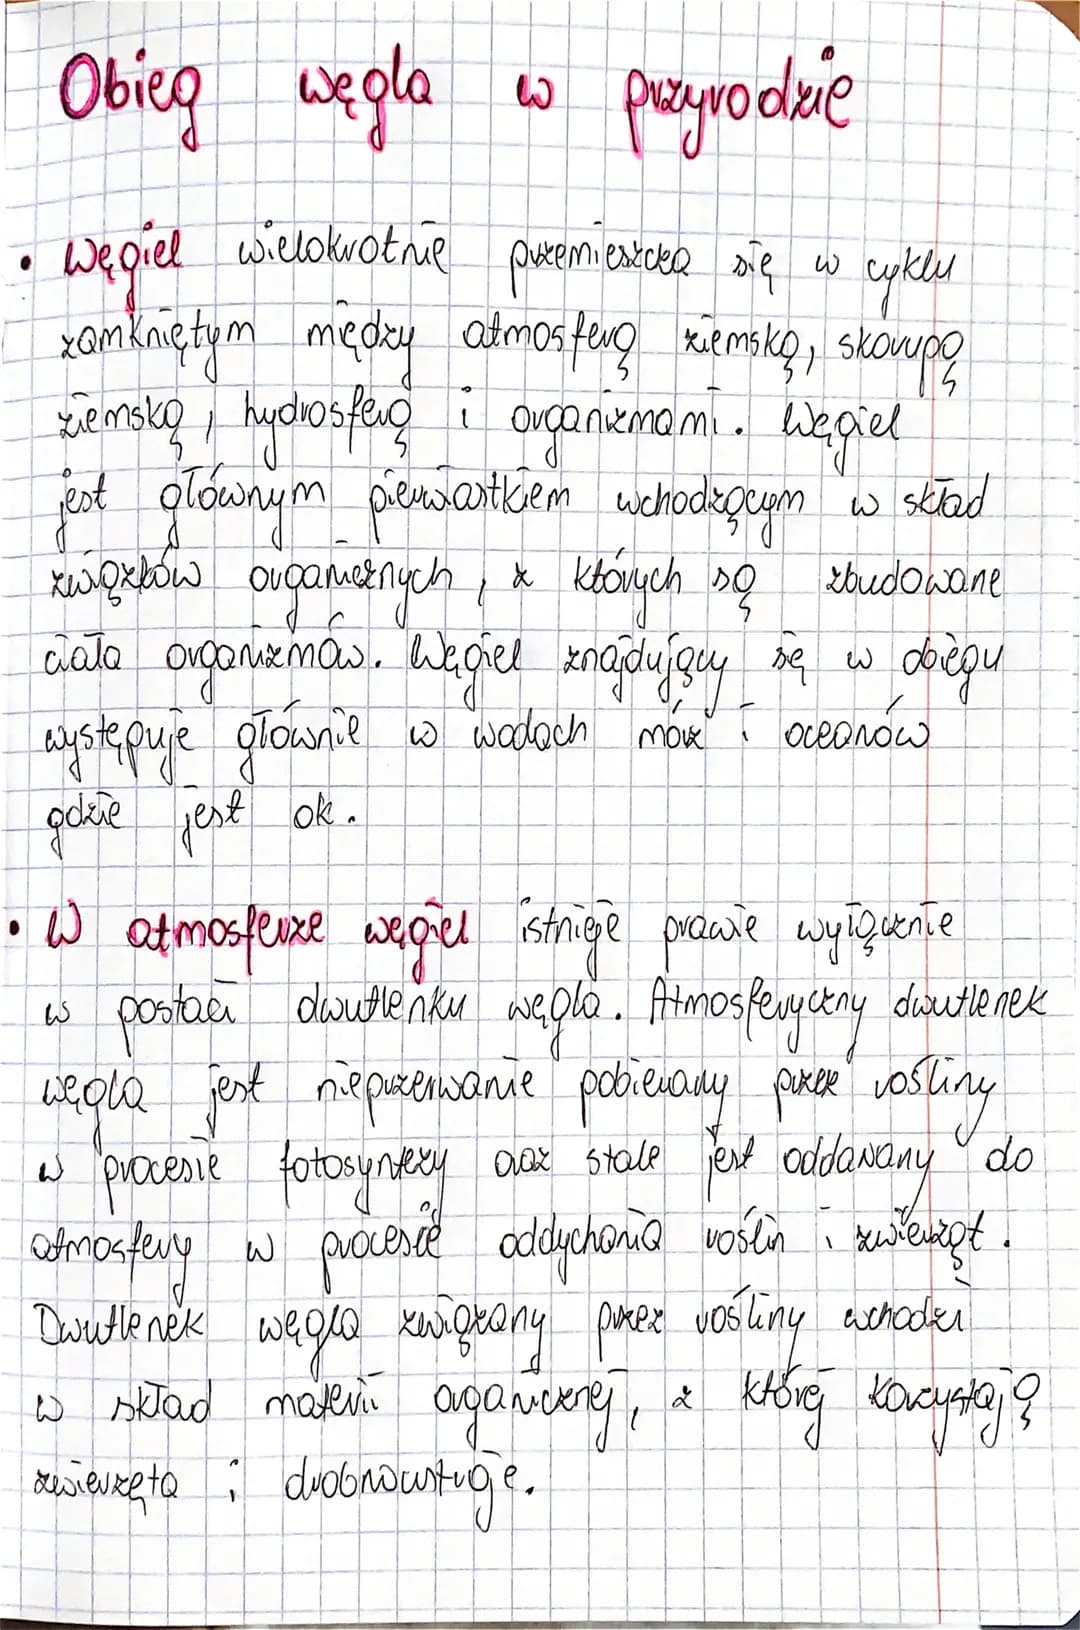 Obieg węgla w przyrodzie
• Węgiel wielokrotnie przemieszcza się w cyklu
zamkniętym między atmosferą ziemską, skorupą
ziemską, hydrosferą i organizmami. Węgiel
jest głównym pierwiastkiem wchodzącym w skład
związków organicznych, z których są zbudowane
ciała organizmów. Węgiel znajdujący się w obiegu
występuje głównie w wodach mórz i oceanów
gdzie jest ok.
• W atmosferze węgiel istnieje prawie wyłącznie
w postaci dwutlenku węgla. Atmosferyczny dwutlenek
węgla jest nieprzerwanie pobierany przez rośliny
w procesie fotosyntezy oraz stale jest oddawany do
atmosfery w procesie oddychania roślin i zwierząt.
Dwutlenek węgla związany przez rośliny wchodzi
w skład materii organicznej, z której korzystają
zwierzęta i drobnoustroje.